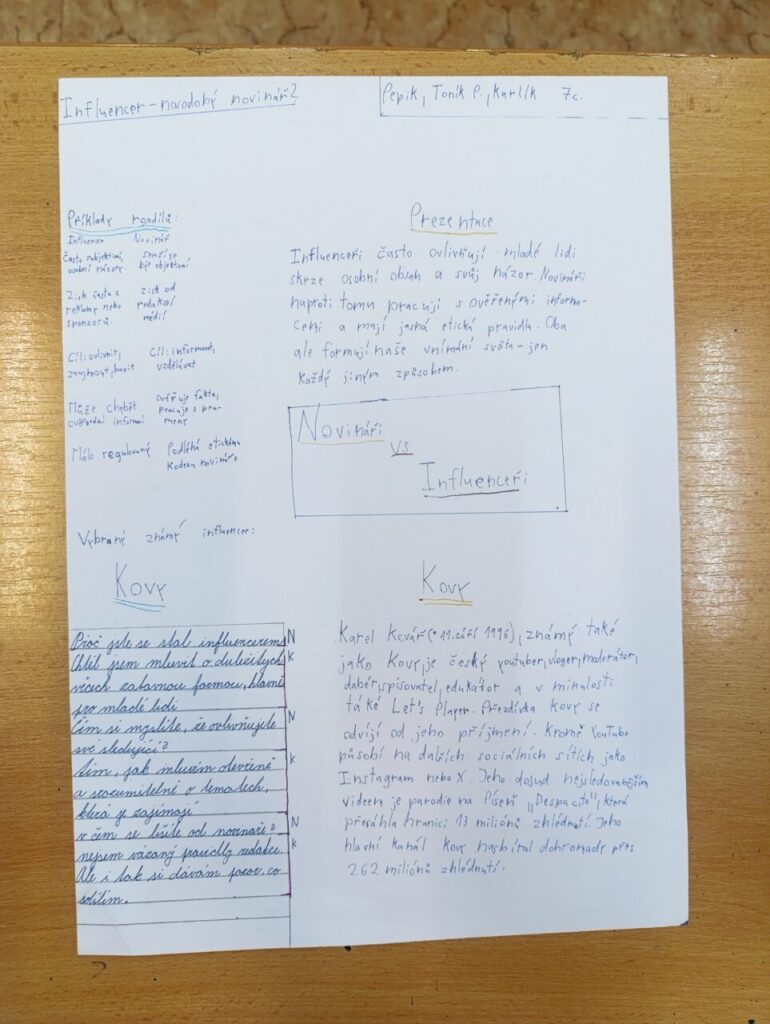 Influencer - novodobý novinář?
Pepik, Toník P., Karlík 7c.
Příklady rozdílů:
Influencer Novinář
často subjektivní, snaží se
osobní názory. být objektivní
Zisk často z zisk od
reklamy nebo redakcí
sponzorů. médií
Cíl: ovlivnit, Cíl: informovat,
zaujmout, bavit vzdělávat
Může chybět ověřuje fakta,
ověřování informací pracuje s pra-
meny
Málo regulovaný Podléhá etickému
Kodexu novináře
Vybraný známý influencer:
Kovy
Proč jste se stal influencerem N
Chtěl jsem mluvit o důležitých k
věcech zabavnou formou, hlavně
pro mladé lidi
Čím si myslíte, že ovlivňujete N
své sledující?
tím, jak mluvím otevřeně k
a srozumitelně o tematech,
která je zajímají
v čem se lišíte od novinářů? N
nejsem vázaný pravidly redakce. k
Ale i tak si dávám pozor, co
sdílím.
Prezentace
Influenceři často ovlivňují mladé lidi
skrze osobní obsah a svůj názor. Novináři
naproti tomu pracují s ověřenými informa-
cemi a mají jasná etická pravidla. Oba
ale formují naše vnímání světa - jen
každý jiným způsobem.
Novináři
vs
Influenceři
Kovy
Karel Kovář (* 11. září 1996), známý také
jako Kovy, je český youtuber, vloger, moderátor,
dabér, spisovatel, edukátor a v minulosti
také Let's Player. Přezdívka Kovy se
odvíjí od jeho příjmení. Kromě YouTube
působí na dalších sociálních sítích jako
Instagram nebo X. Jeho dosud nejsledovanějším
videem je parodie na Píseň "Despacito", která
přesáhla hranici 13 miliónů zhlédnutí. Jeho
hlavní kanál Kovy nasbíral dohromady přes
262 miliónů zhlédnutí.